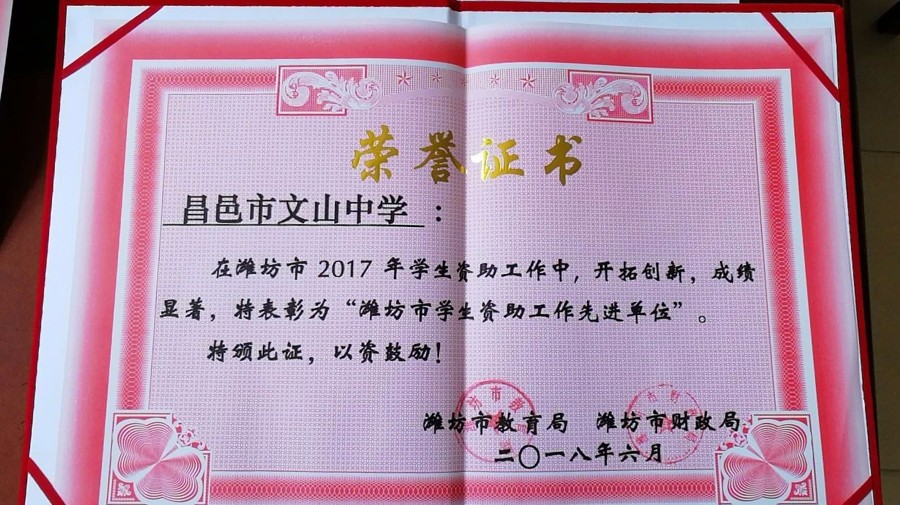 荣誉证书
昌邑市文山中学：
在潍坊市 2017 年学生资助工作中，开拓创新，成绩
显著，特表彰为“潍坊市学生资助工作先进单位”。
特颁此证，以资鼓励！
潍坊市教育局 潍坊市财政局
二〇一八年六月